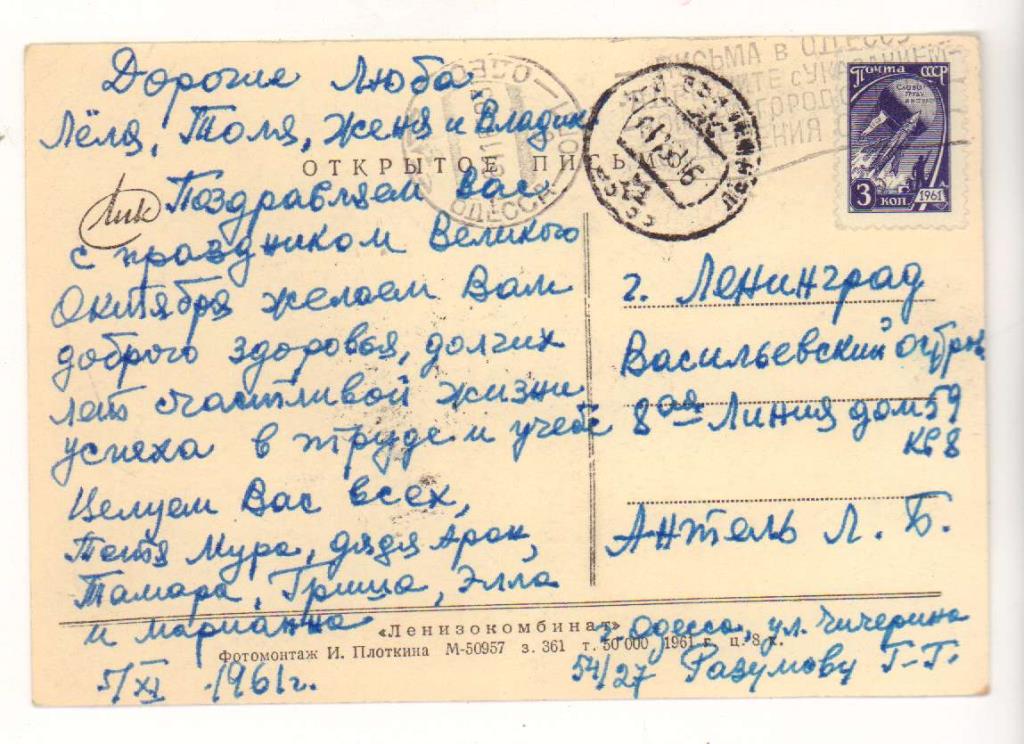 Дорогие Люба
Лёля, Толя, Женя и Владик
ОТКРЫТОЕ ПИСЬМО
Поздравляем Вас
с праздником Великого
Октября желаем Вам
доброго здоровья, долгих
лет счастливой жизни
успеха в труде и учебе
Целуем Вас всех,
Тётя Мура, дядя Арон,
Тамара, Гриша, Элла
и марианна
5/XI 1961г.
ОДЕССА
ПИСЬМА В ОДЕССУ
ПОЧТА СССР
3 КОП 1961
г. Ленинград
Васильевский остров
8ая Линия дом 59
кв 8
Антель Л. Б.
«Ленизокомбинат»
Фотомонтаж И. Плоткина М-50957 з. 361 т. 50 000 1961 г. ц. 8 к.
г. Одесса, ул. Чичерина
54/27 Разумову Г-Г.